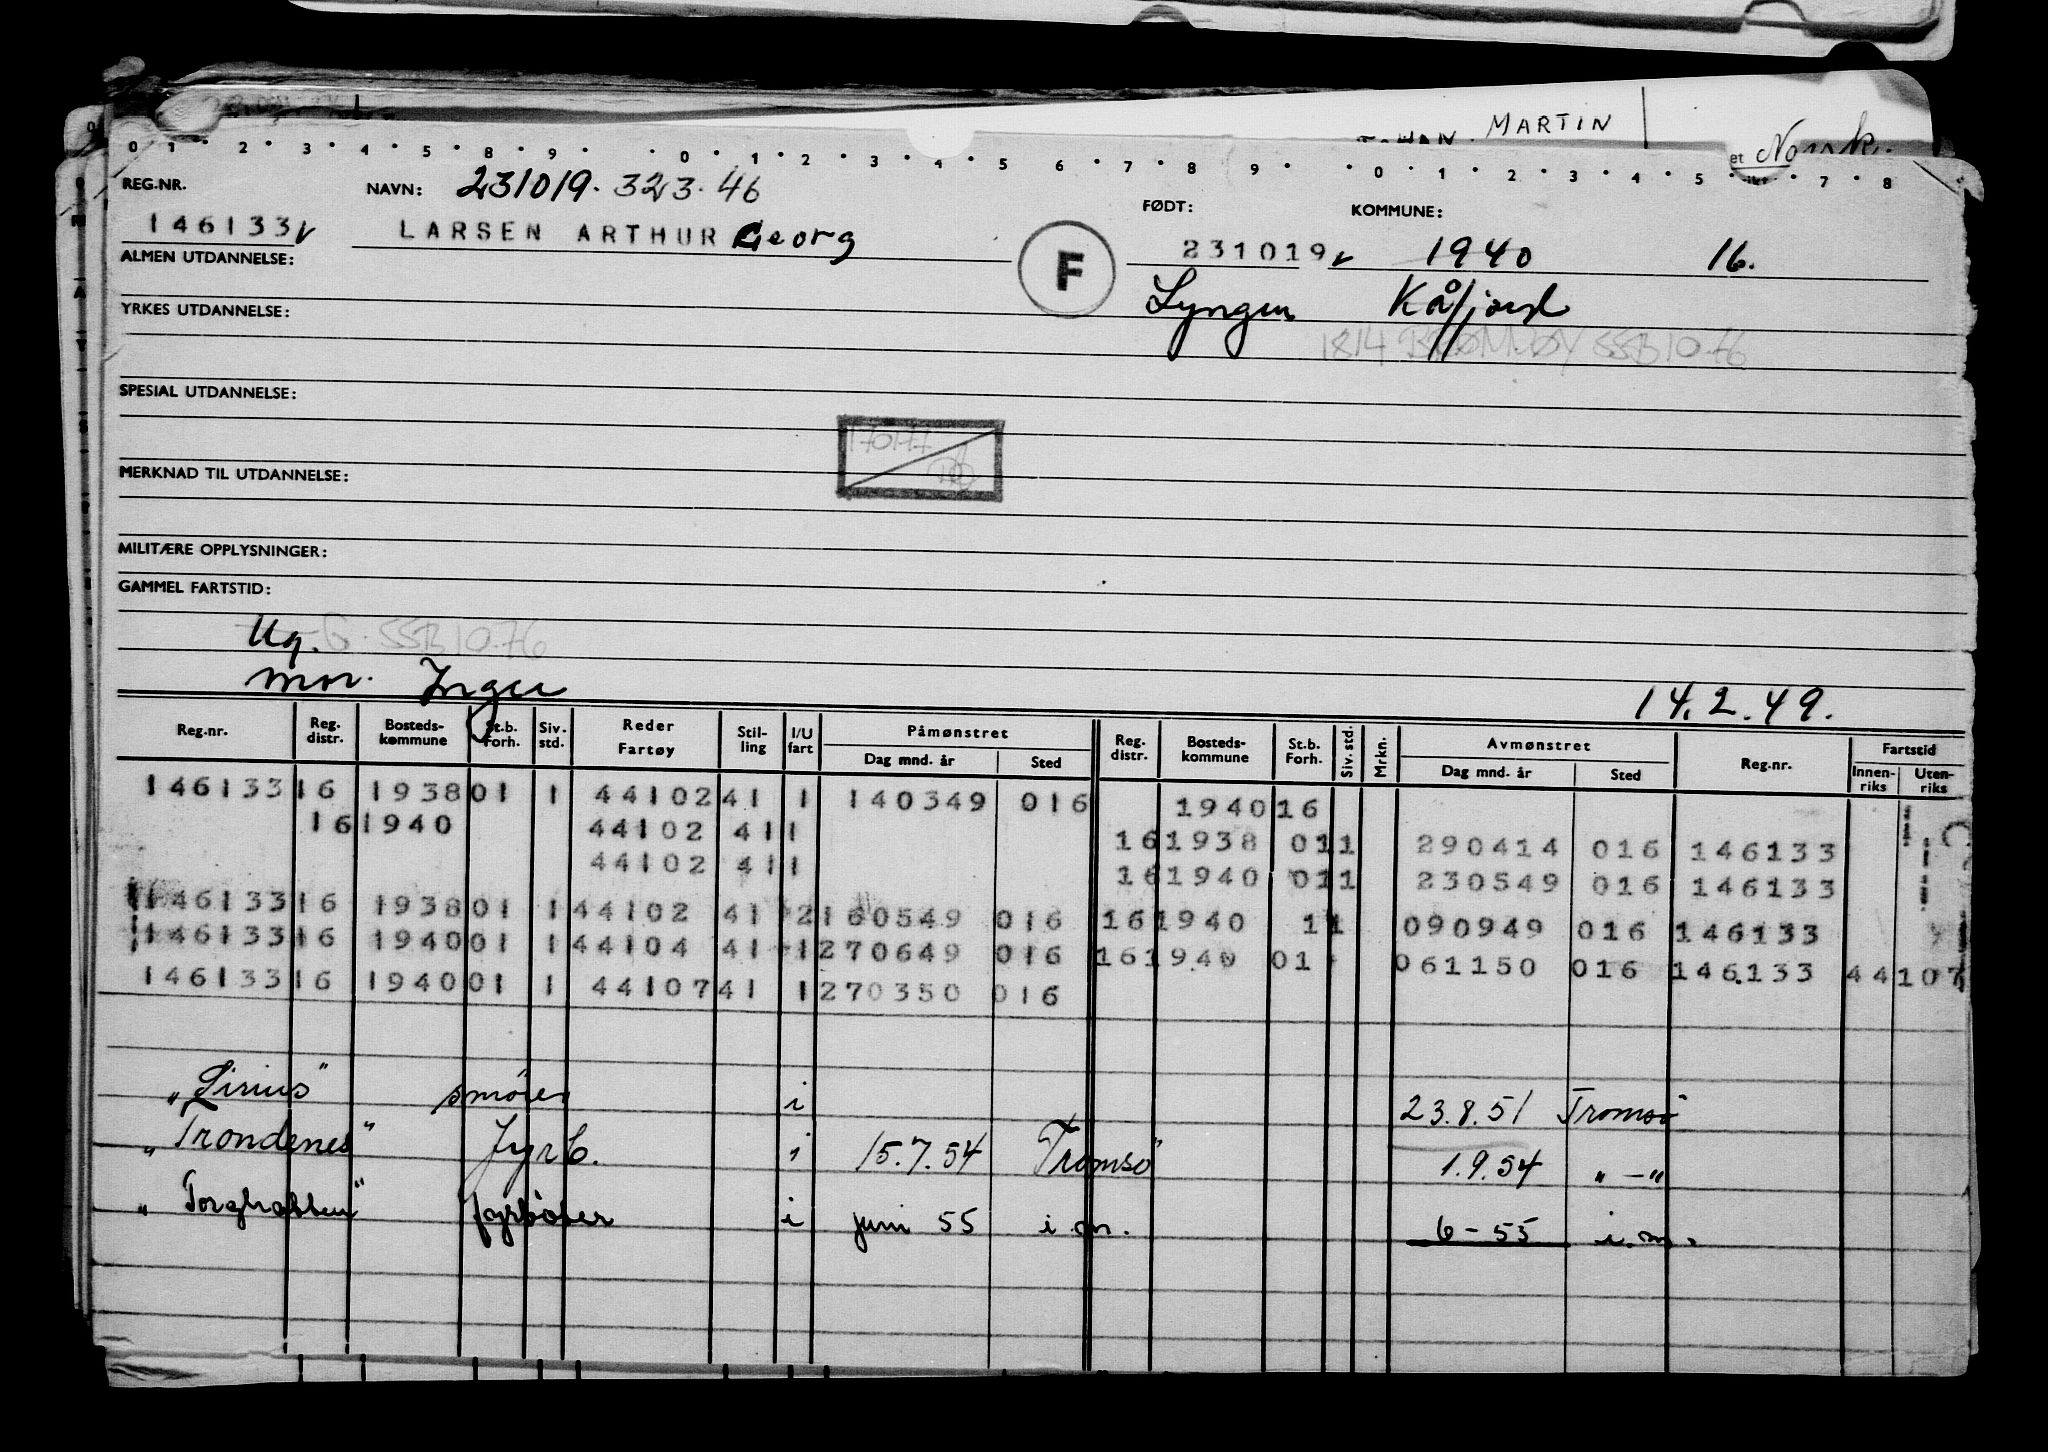 MARTIN
et Norsk.
0 1 2 3 4 5 8 9 0 1 2 3 4 5 6 7 8 9 0 1 2 3 4 5 7 8
REG.NR. NAVN: 231019. 323.46 FØDT: KOMMUNE:
146133 LARSEN ARTHUR Georg F 231019 1940 16.
ALMEN UTDANNELSE: Lyngen Kåfjord
YRKES UTDANNELSE: 1814 BRØNNØY SSB 10-76
SPESIAL UTDANNELSE:
170177
MERKNAD TIL UTDANNELSE:
MILITÆRE OPPLYSNINGER:
GAMMEL FARTSTID:
Ug. G. SSB 10.76
mor. Inger 14.2.49.
Reg.nr. Reg. distr. Bosteds-kommune St.b. Forh. Siv. std. Reder Fartøy Stil-ling I/U fart Påmønstret Dag mnd. år Sted Reg. distr. Bosteds-kommune St.b. Forh. Siv. std. Mrkn. Avmønstret Dag mnd. år Sted Reg.nr. Fartstid Innen-riks Uten-riks
146133 16 1938 01 1 44102 41 1 140349 016 1940 16
16 1940 44102 41 1 16 1938 01 1 290414 016 146133
44102 41 1 16 1940 01 1 230549 016 146133
146133 16 1938 01 1 44102 41 2 160549 016 16 1940 1 1 090949 016 146133
146133 16 1940 01 1 44104 41 1 270649 016 16 1940 01 061150 016 146133 44107
146133 16 1940 01 1 44107 41 1 270350 016
"Sirius" smører i 23.8.51 Tromsø
"Trondenes" fyrb. i 15.7.54 Tromsø 1.9.54 "-"
"Torghatten" fyrbøter i juni 55 i.m. 6-55 i.m.